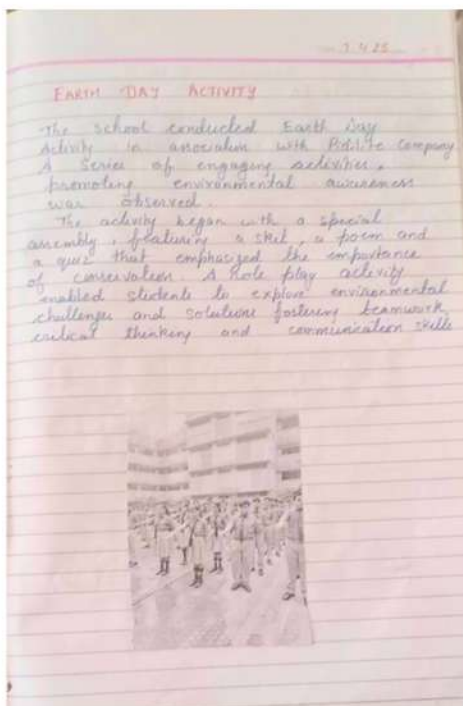 7.4.25
EARTH DAY ACTIVITY
The school conducted Earth Day
Activity in association with Company
A series of engaging activities,
promoting environmental awareness
was observed.
The activity began with a special
assembly, featuring a skit, a poem and
a quiz that emphasized the importance
of conservation. A Role play activity
enabled students to explore environmental
challenges and solutions fostering teamwork,
critical thinking and communication skills